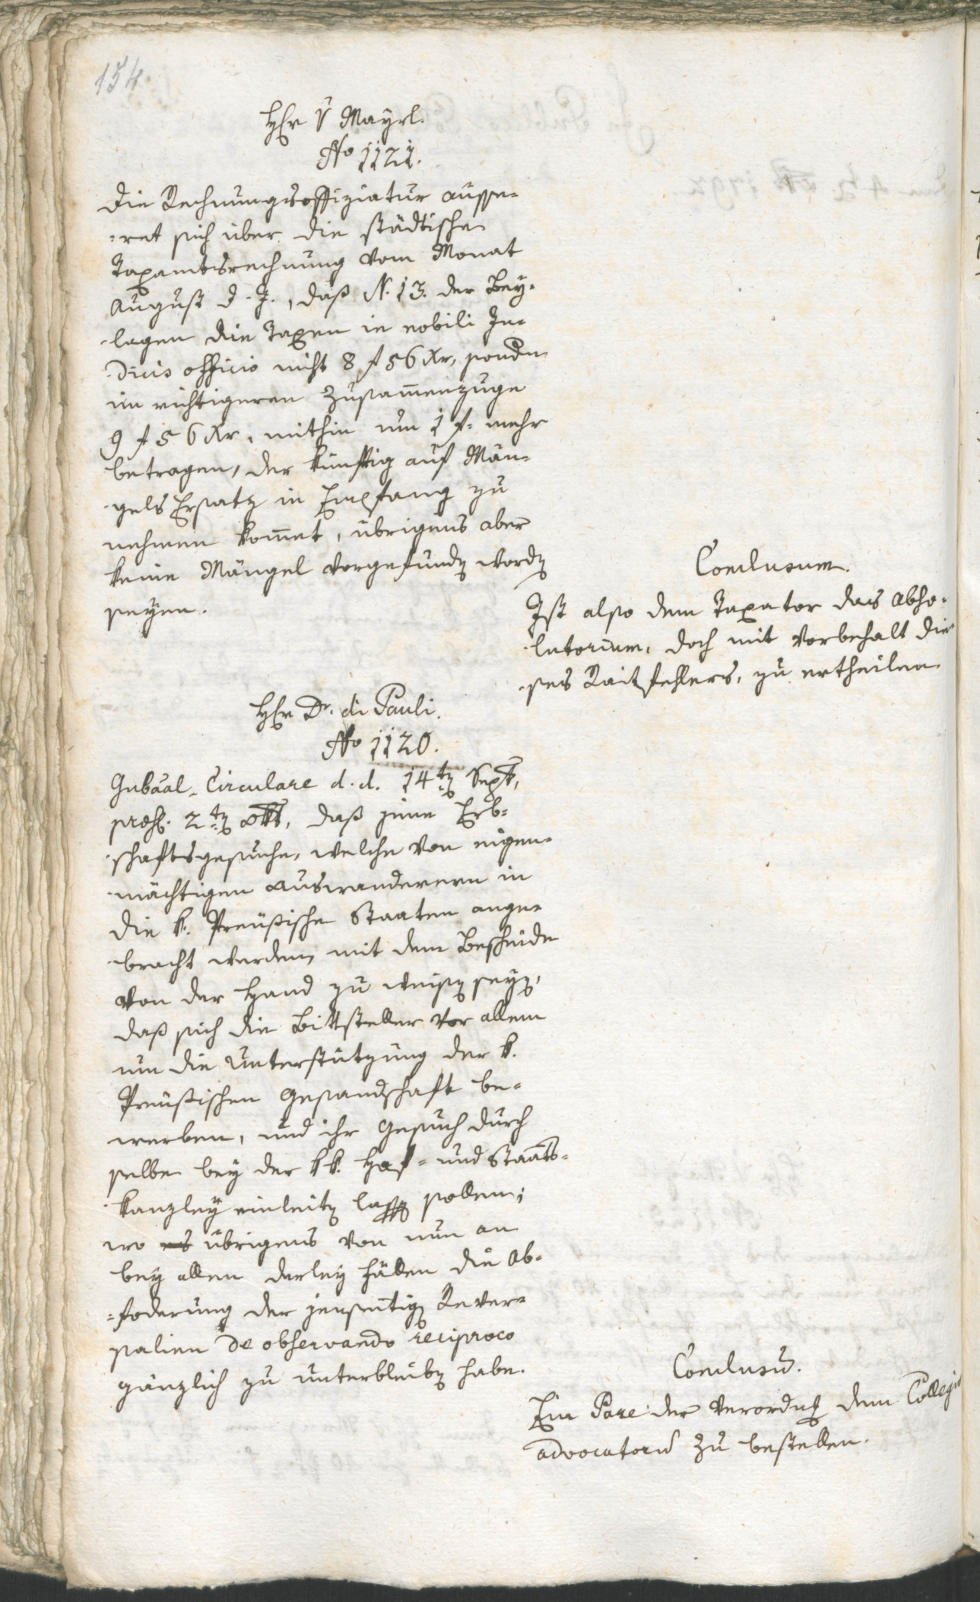 154.
Hr v Mayrl.
No 1121.
Die Rechnungsoffiziatur äusse-
=ret sich über die städtische
Taxamtsrechnung vom Monat
August d. J., daß N. 13. der Bey-
lagen die Taxen in nobili Ju-
dicis officio nicht 8 f 56 Xr, sondern
im richtigeren Zusam̄enzuge
9 f 56 Xr, mithin um 1 f. mehr
betragen, der künftig auf Män-
gels Ersatz in Empfang zu
nehmen kom̄et, übrigens aber
keine Mängel vorgefunden worden
seyen.
Conclusum.
Ist also dem Taxator das Abso-
lutorium, doch mit Vorbehalt die
ses Raitfehlers, zu ertheilen.
Hr Dr. di Pauli.
No 1120.
Gubāal-Circulare d. d. 14ten Sept,
præs. 2ten 8br, daß jene Erb-
schaftsgesuche, welche von eigen-
mächtigen Auswanderern in
die k. Preußische Staaten ange-
bracht werden, mit dem Bescheide
von der Hand zu weisen seyen,
daß sich die Bittsteller vor allem
um die Unterstützung der k.
Preußischen Gesandschaft be-
werben, und ihr Gesuch durch
selbe bey der kk. Hof- und Staats-
kanzley einleiten lassen sollen;
wo es übrigens von nun an
bey allen derley Fällen die Ab-
=foderung der jenseitigen Rever-
salien de observando reciproco
gänzlich zu unterbleiben habe.
Conclusū.
Ein Pare der Verordnung dem Collegio
advocatorū zu bestellen.